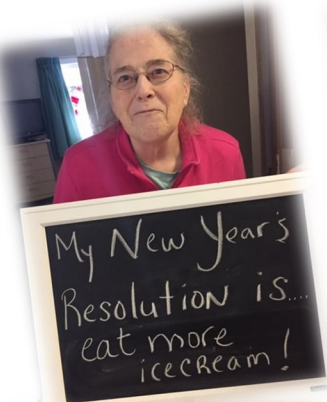 My New Year's
Resolution is....
eat more
icecream!